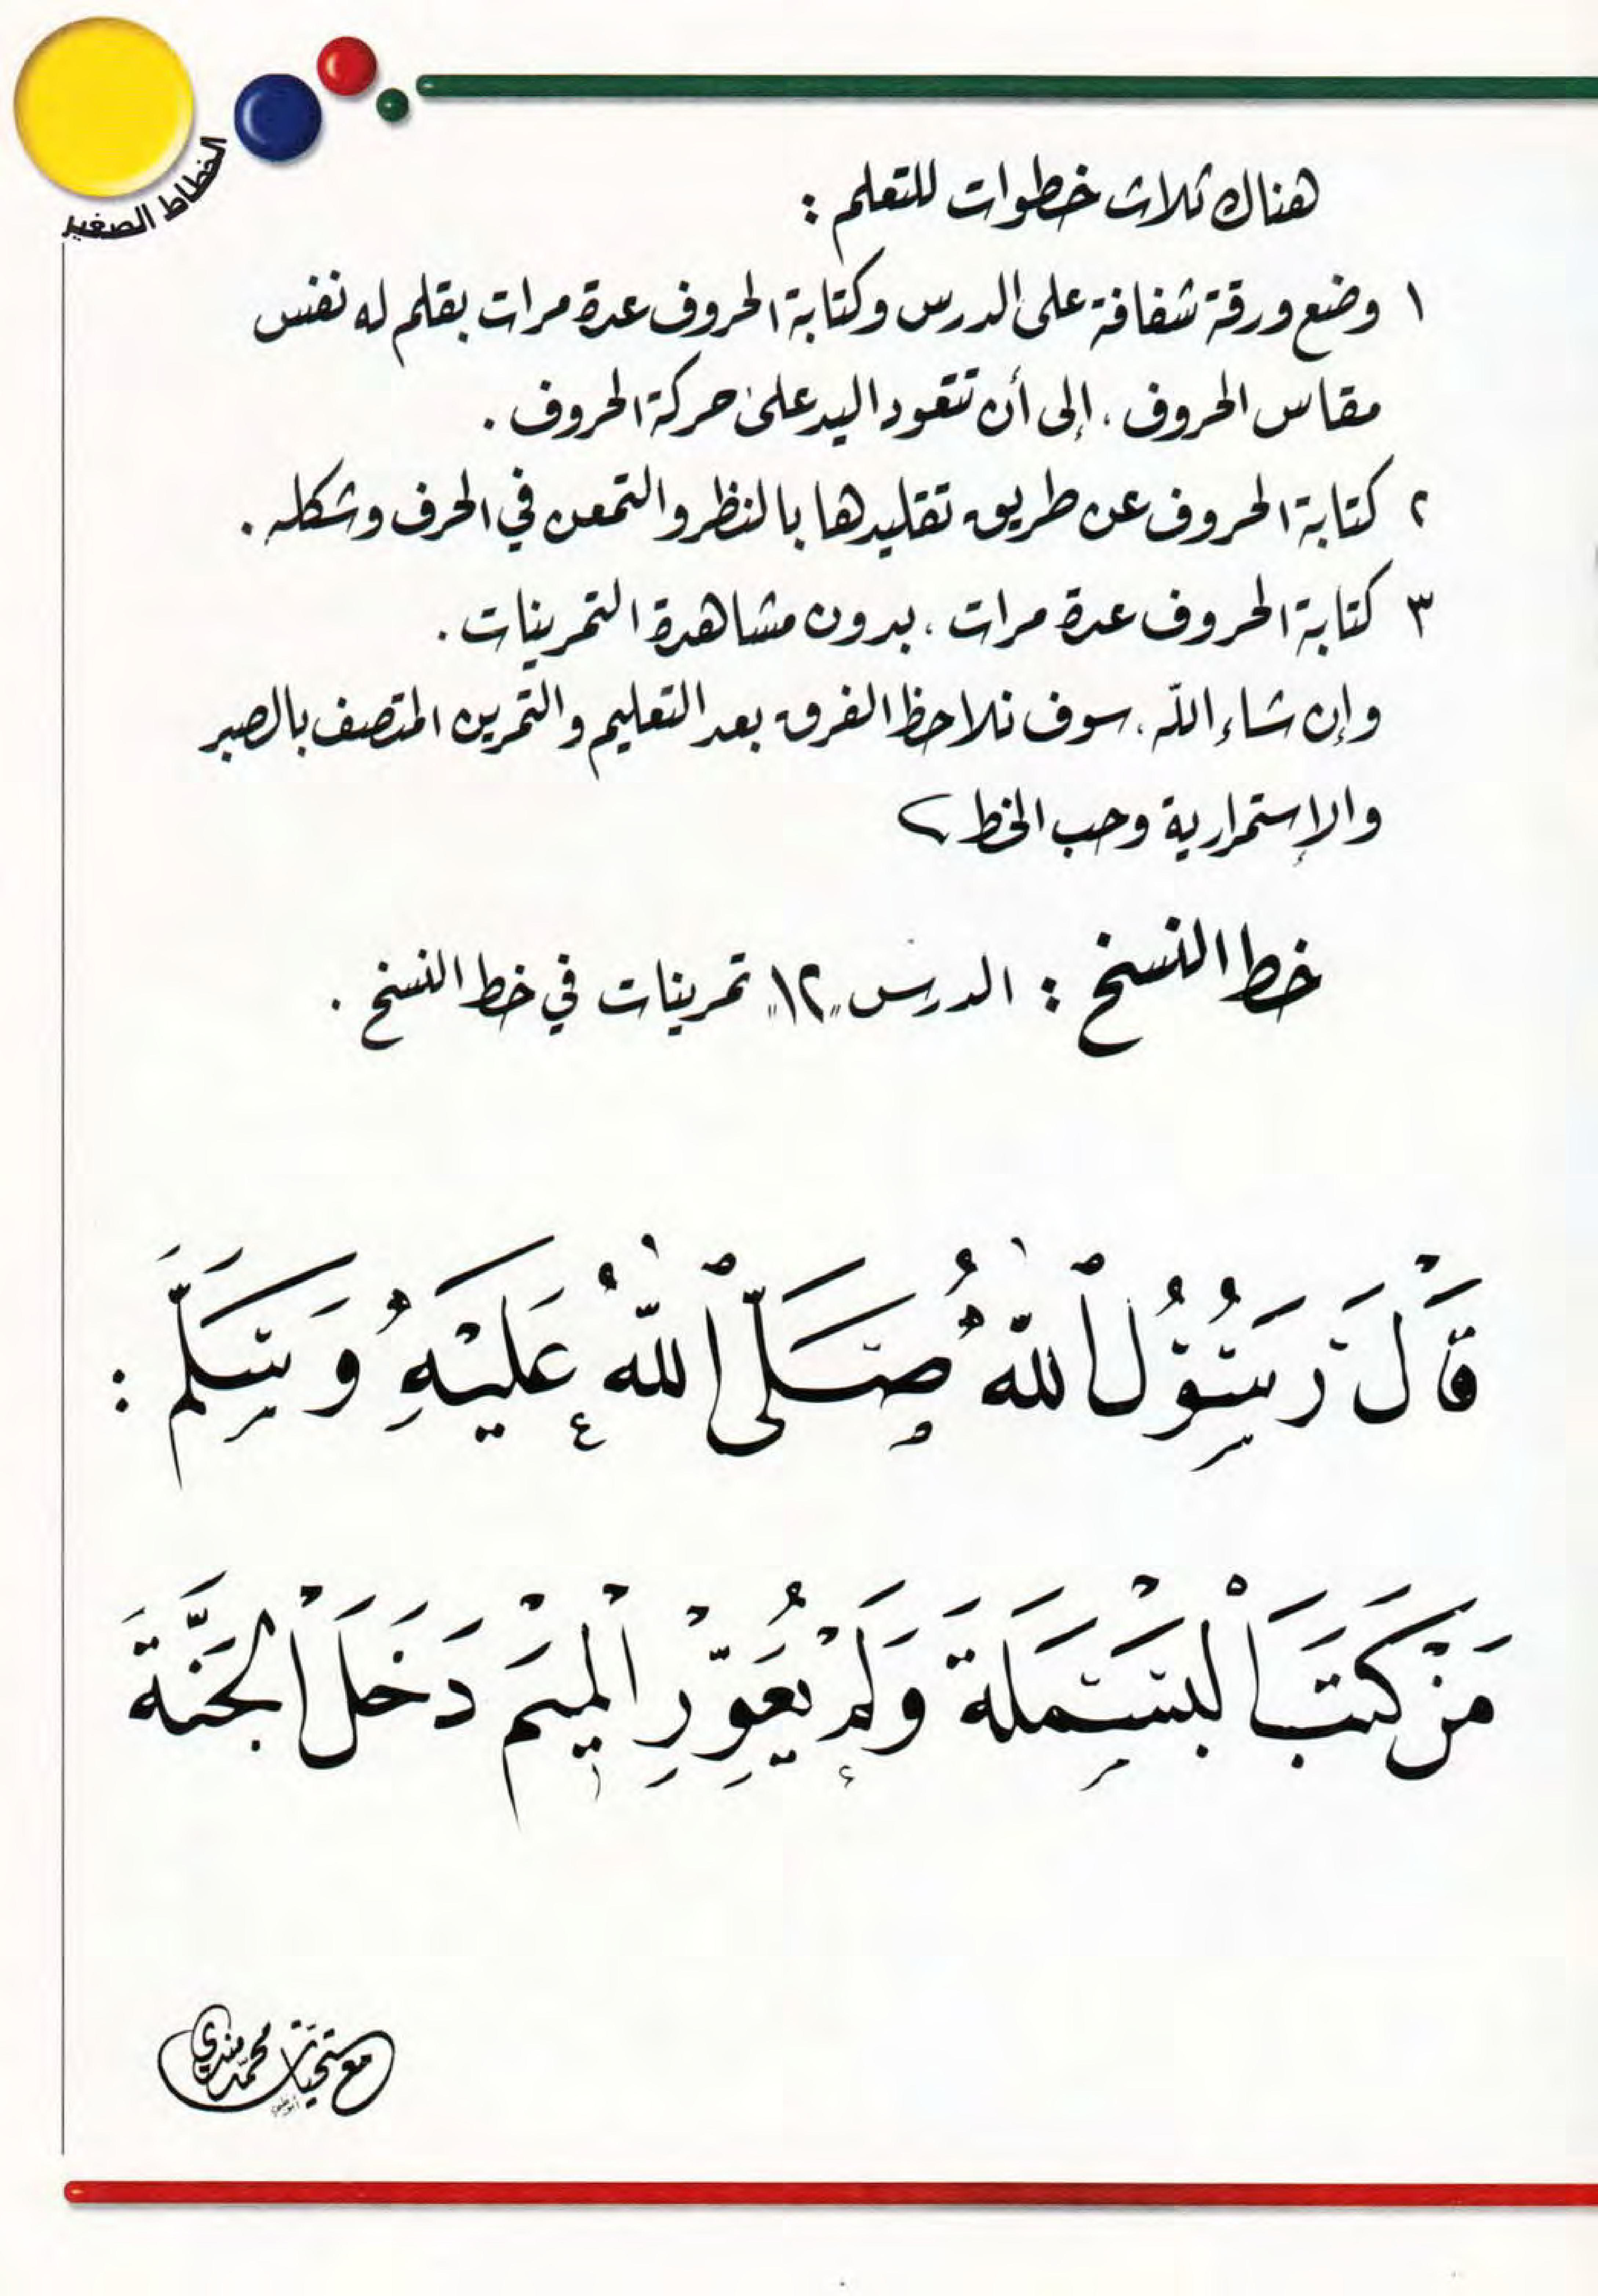 الخطاط الصغير
هناك ثلاث خطوات للتعلم :
١ وضع ورقة شفافة على الدرس وكتابة الحروف عدة مرات بقلم له نفس
مقاس الحروف ، إلى أن تتعود اليد على حركة الحروف .
٢ كتابة الحروف عن طريق تقليدها بالنظر والتمعن في الحرف وشكله .
٣ كتابة الحروف عدة مرات ، بدون مشاهدة التمرينات .
وإن شاء الله ، سوف نلاحظ الفرق بعد التعليم والتمرين المتصف بالصبر
والإستمرارية وحب الخط
خط النسخ : الدرس "١٢" تمرينات في خط النسخ .
قَالَ رَسُوْلُ اللهِ صَلَّى اللهُ عَلَيْهِ وَسَلَّمَ :
مَنْ كَتَبَ الْبَسْمَلَةَ وَلَمْ يُعَوِّرِ الْمِيْمَ دَخَلَ الْجَنَّةَ
مع تحيات محمد مندي
أبوظبي